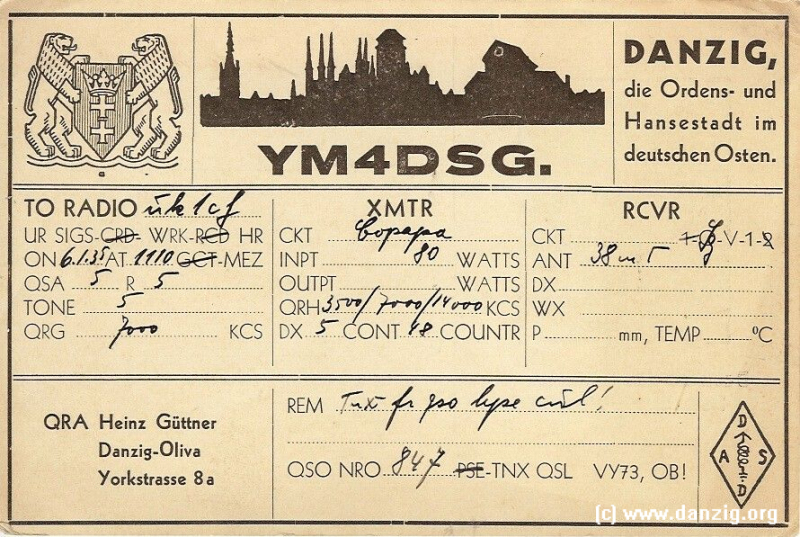 DANZIG,
die Ordens- und
Hansestadt im
deutschen Osten.
YM4DSG.
TO RADIO
UR SIGS-CRD- WRK-RCD HR
ON 6.1.35 AT 1110 GCT-MEZ
QSA 5 R 5
TONE 5
QRG 7000 KCS
XMTR
CKT Copapa
INPT 80 WATTS
OUTPT WATTS
QRH 3500/7000/14000 KCS
DX 5 CONT 18 COUNTR
RCVR
CKT -V-1-2
ANT 38 m
DX
WX
P mm, TEMP °C
QRA Heinz Güttner
Danzig-Oliva
Yorkstrasse 8a
REM Tnx fr qso hpe cul!
QSO NRO 847 PSE-TNX QSL VY73, OB!
D
A S
D
(c) www.danzig.org